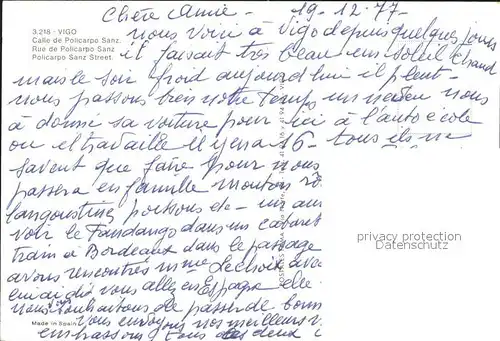 3.218 - VIGO
Calle de Policarpo Sanz.
Rue de Policarpo Sanz
Policarpo Sanz Street.
Chère Annie - 19-12-77
nous voici à Vigo depuis quelques jours
il faisait très beau un soleil chaud
mais le soir froid aujourd'hui il pleut -
nous passons bien notre temps un neveu nous
à donné sa voiture pour ici à l'auto école
ou el travaille il y en a 16 - tous ils ne
savent que faire pour nous
passera en famille mouton rô
langoustines poissons etc - un au
voir le Fandango dans un cabaret
train à Bordeaux dans le passage
avons rencontrés mme Lechoix ave
lui ai dis vous allez en Espagne elle
nous vous souhaitons de passer de bonn
vous envoyons nos meilleurs v
embrassons tous les deux
Made in Spain
privacy protection
Datenschutz